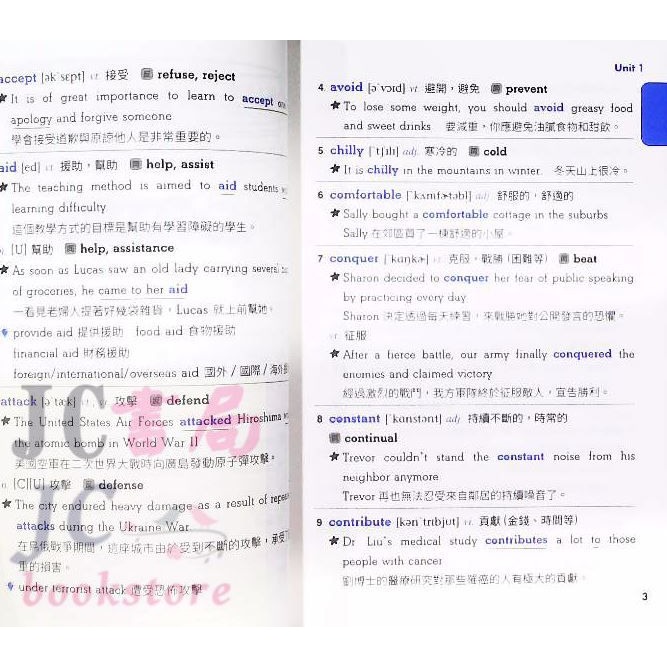 accept [əkˋsɛpt] vt. 接受 refuse, reject
★ It is of great importance to learn to accept
apology and forgive someone
學會接受道歉與原諒他人是非常重要的。
aid [ed] vt. 援助，幫助 help, assist
★ The teaching method is aimed to aid students
learning difficulty
這個教學方式的目標是幫助有學習障礙的學生。
[U] 幫助 help, assistance
★ As soon as Lucas saw an old lady carrying several
of groceries, he came to her aid
一看見老婦人提著好幾袋雜貨，Lucas 就上前幫她。
provide aid 提供援助 food aid 食物援助
financial aid 財務援助
foreign/international/overseas aid 國外/國際/海外
attack [əˋtæk] vt., vi. 攻擊 defend
★ The United States Air Forces attacked Hiroshima
the atomic bomb in World War II
美國空軍在二次世界大戰時向廣島發動原子彈攻擊。
[C][U] 攻擊 defense
★ The city endured heavy damage as a result of
attacks during the Ukraine War
在烏俄戰爭期間，這座城市由於受到不斷的攻擊，承受
重的損害。
under terrorist attack 遭受恐怖攻擊
JC書局
JC
bookstore
Unit 1
4 avoid [əˋvɔɪd] vt. 避開，避免 同 prevent
★ To lose some weight, you should avoid greasy food
and sweet drinks 要減重，你應避免油膩食物和甜飲。
5 chilly [ˋtʃɪlɪ] adj. 寒冷的 同 cold
★ It is chilly in the mountains in winter. 冬天山上很冷。
6 comfortable [ˋkʌmfɚtəbl] adj. 舒服的，舒適的
★ Sally bought a comfortable cottage in the suburbs
Sally 在郊區買了一棟舒適的小屋。
7 conquer [ˋkɑŋkɚ] vt. 克服，戰勝 (困難等) 同 beat
★ Sharon decided to conquer her fear of public speaking
by practicing every day
Sharon 決定透過每天練習，來戰勝她對公開發言的恐懼。
vt. 征服
★ After a fierce battle, our army finally conquered the
enemies and claimed victory
經過激烈的戰鬥，我方軍隊終於征服敵人，宣告勝利。
8 constant [ˋkɑnstənt] adj. 持續不斷的，時常的
同 continual
★ Trevor couldn't stand the constant noise from his
neighbor anymore
Trevor 再也無法忍受來自鄰居的持續噪音了。
9 contribute [kənˋtrɪbjʊt] vt. 貢獻 (金錢、時間等)
★ Dr. Liu's medical study contributes a lot to those
people with cancer
劉博士的醫療研究對那些罹癌的人有極大的貢獻。
3